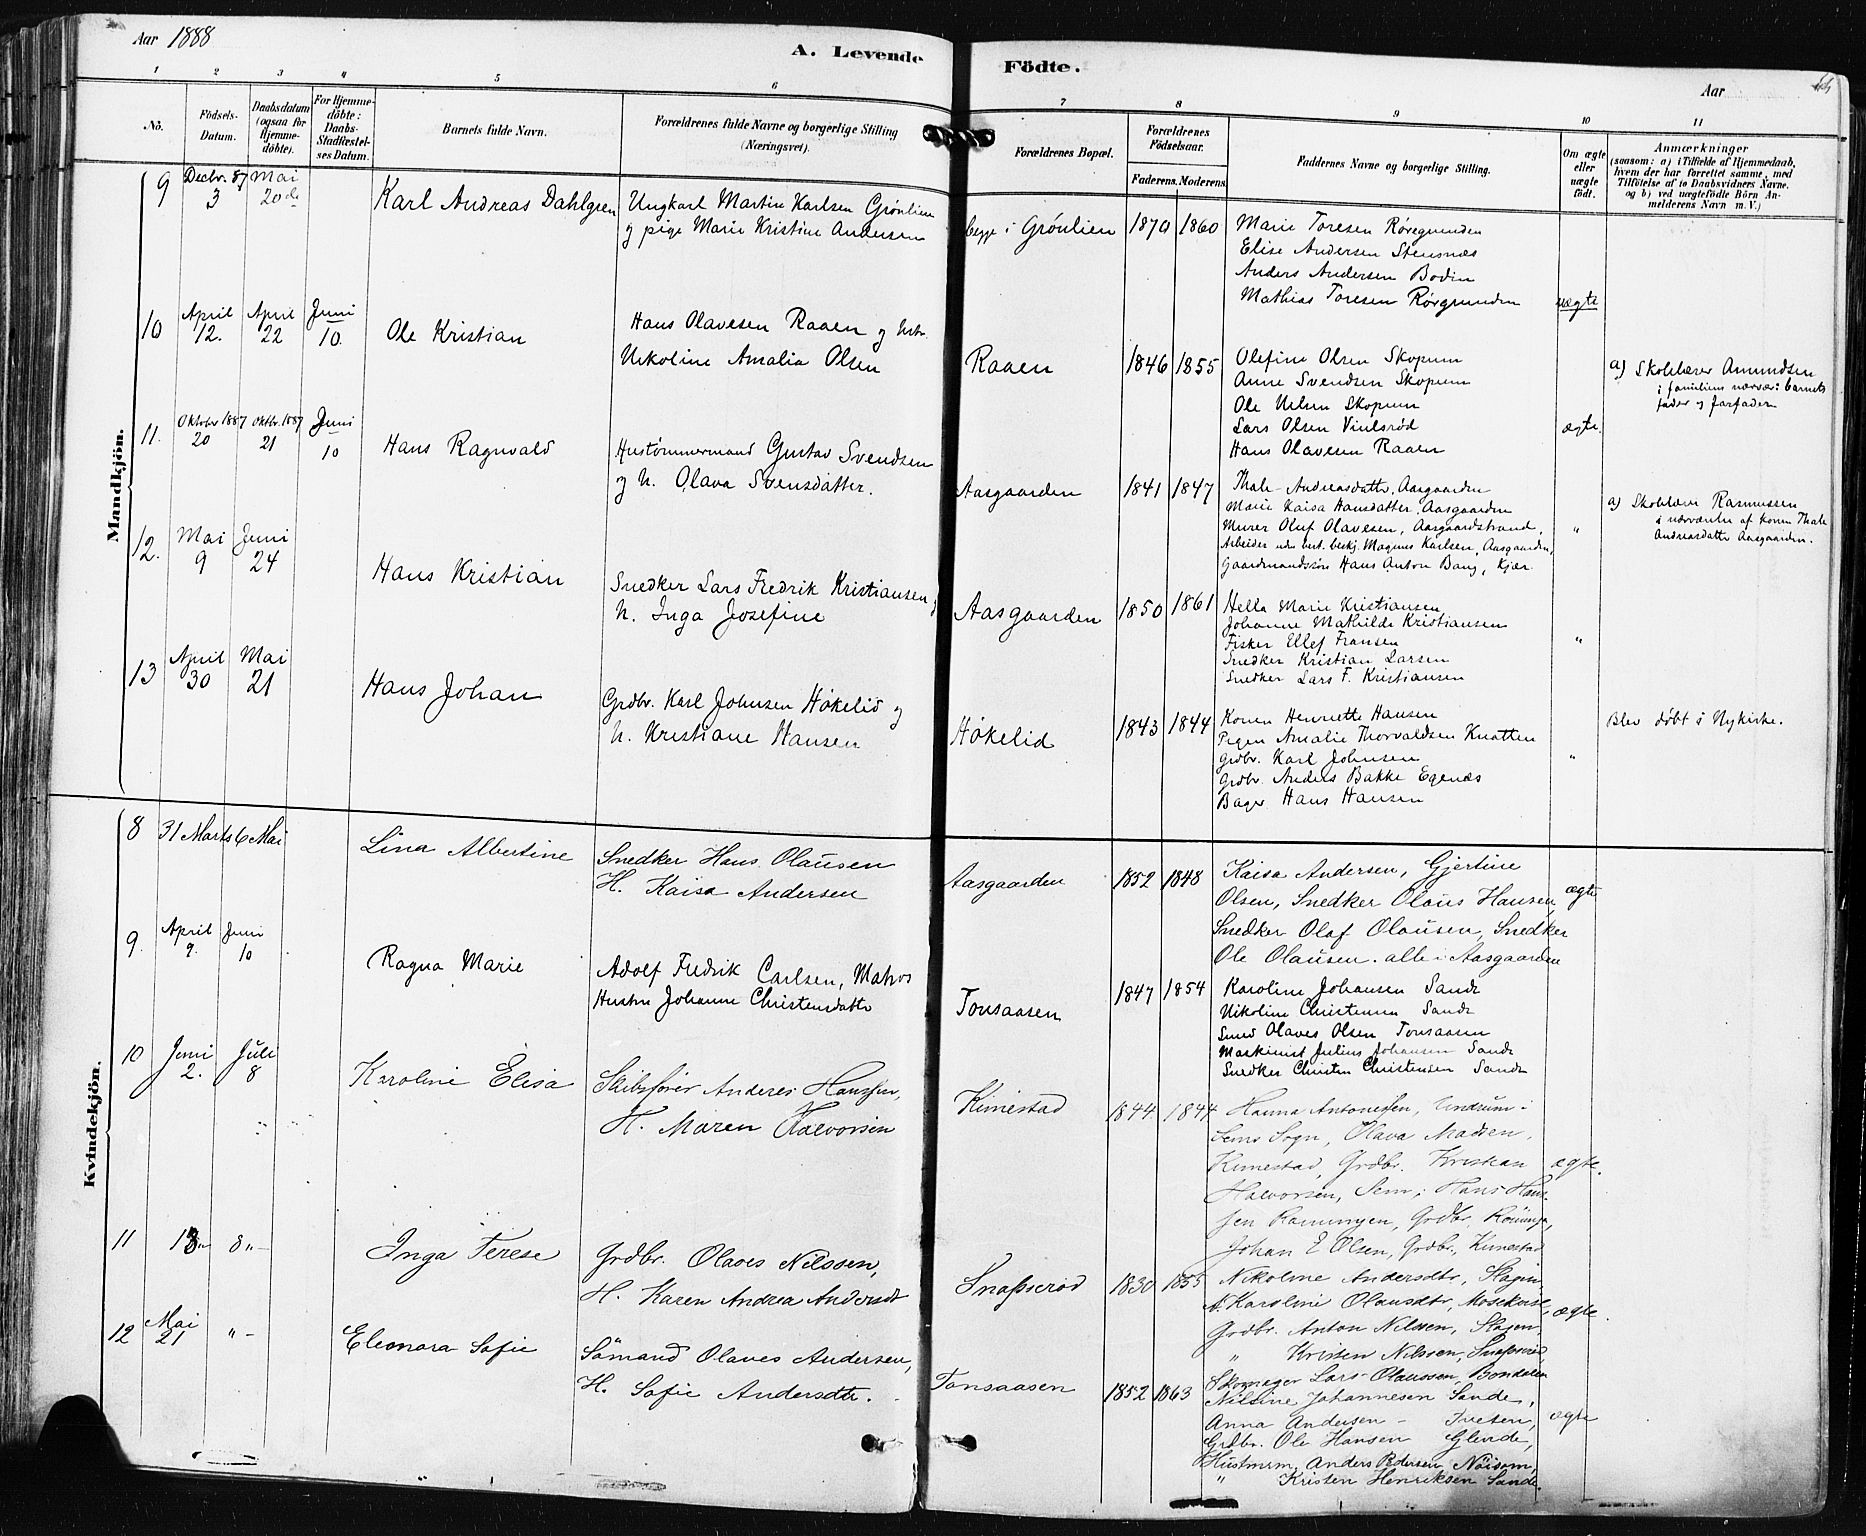 Aar 1888
A. Levende Födte.
Aar
1 2 3 4 5 6 7 8 9 10 11
No.
Födsels-Datum.
Daabsdatum (ogsaa for Hjemme-döbte).
For Hjemme-döbte: Daabs-Stadfæstel-ses Datum.
Barnets fulde Navn.
Forældrenes fulde Navne og borgerlige Stilling (Næringsvei).
Forældrenes Bopæl.
Forældrenes Födselsaar.
Faderens. Moderens.
Faddernes Navne og borgerlige Stilling.
Om ægte eller uægte födt.
Anmærkninger
(saasom: a) i Tilfælde af Hjemmedaab, hvem der har forrettet samme, med Tilföielse af to Daabsvidners Navne, og b) ved uægtefödte Börn An-melderens Navn m. V.)
Mandkjön.
9 Decbr. 87 3 Mai 20de Karl Andreas Dahlgren
Ungkarl Martin Karlsen Grönlien
og pige Marie Kristine Andersen
begge i Grönlien 1870 1860
Marie Toresen Röregrunden
Elise Andersen Stensnæs
Anders Andersen Bodin
Mathias Toresen Rörgrunden uægte
10 April 12. April 22 Juni 10. Ole Kristian
Hans Olavesen Raaen og Hstr.
Nikoline Amalia Olsen
Raaen 1846 1855
Olefine Olsen Skopum
Anne Svendsen Skopum
Ole Nilsen Skopum
Lars Olsen Vinlsröd ægte.
Hans Olavesen Raaen
a) Skolelærer Amundsen
i familiens nærvær: barnets
fader og farfader
11. Oktober 1887 20 Oktbr. 1887 21 Juni 10 Hans Ragnvald
Hustömmermand Gustav Svendsen
og h. Olava Svensdatter.
Aasgaarden 1841 1847
Thale Andreasdattr, Aasgaarden
Marie Kaisa Hansdatter, Aasgaarden
Murer Oluf Olavesen, Aasgaardstrand, "
Arbeider uden best. beskj. Magnus Karlsen, Aasgaarden,
Gaardmandssön Hans Anton Bang, Kjær.
a) Skolelærer Rasmussen
i nærværelse af konen Thale
Andreasdattr Aasgaarden.
12. Mai 9 Juni 24 Hans Kristian
Snedker Lars Fredrik Kristiansen og
h. Inga Josefine
Aasgaarden 1850 1861
Hella Marie Kristiansen
Johanne Mathilde Kristiansen
Fisker Ellef Fransen "
Snedker Kristian Larsen
Snedker Lars F. Kristiansen
13 April 30 Mai 21 Hans Johan
Grdbr. Karl Johnsen Hökelid og
h. Kristiane Hansen
Hökelid 1843 1844
Konen Henriette Hansen
Pigen Amalie Thorvaldsen Knatten
Grdbr. Karl Johnsen "
Grdbr. Anders Bakke Egenæs
Bager Hans Hansen
Blev döbt i Nykirke.
Kvindekjön.
8 31 Marts 6 Mai Lina Albertine
Snedker Hans Olausen
H. Kaisa Andersen
Aasgaarden 1852 1848
Kaisa Andersen, Gjertine
Olsen, Snedker Olaus Hansen, ægte
Snedker Olaf Olausen, Snedker
Ole Olausen. alle i Aasgaarden
9. April 9. Juni 10 Ragna Marie
Adolf Fredrik Carlsen, Matros
Hustru Johanne Christensdattr
Tonsaasen 1847 1854
Karoline Johansen Sande
Nikoline Christensen Sande
Smed Olaves Olsen Tonsaasen
Maskinist Julius Johansen Sande
Snedker Christen Christensen Sande
10 Juni 2. Juli 8 Karoline Elisa
Skibsförer Anders Hanssen,
H. Maren Halvorsen
Kimestad 1844 1844
Hanna Antonessen, Undrum i
Sems Sogn, Olava Madsen,
Kimestad, Grdbr. Kristian ægte.
Halvorsen, Sem, Hans Han-
sen Ramnyen, Grdbr.
Johan E Olsen, Grdbr., Kimestad
11 13 "- 8 "- Inga Terese
Grdbr. Olaves Nilssen,
H. Karen Andrea Andersdt
Snapseröd 1830 1855
Nikoline Andersdtr, Slagen,
N. Karoline Olausdtr, ægte.
Grdbr. Anton Nilssen, Slagen,
" Kristen Nilssen, Snapseröd,
Skomager Lars Olaussen, Bondalen
12 Mai 21 "- Eleonora Sofie
Sömand Olaves Andersen,
H. Sofie Andersdtr.
Tonsaasen 1852 1863
Nilsine Johannesen Sande,
Anna Andersen - Tveten, ægte
Grdbr. Ole Hansen Glende,
Hustmrm. Anders Pedersen Nöisom,
" Kristen Henriksen Sande.